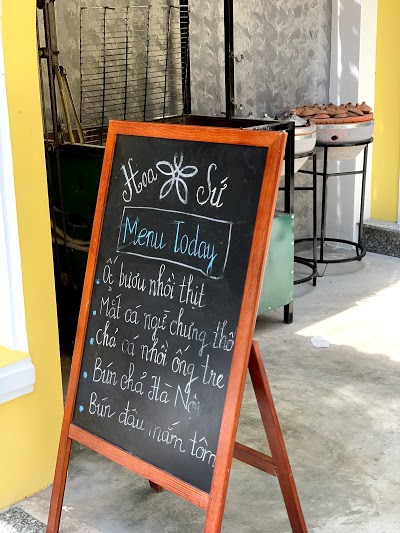 Hoa Sứ
Menu Today
Ốc bươu nhồi thịt
Mắt cá ngừ chưng thố
chả cá nhồi ống tre
Bún chả Hà Nội
Bún đậu mắm tôm